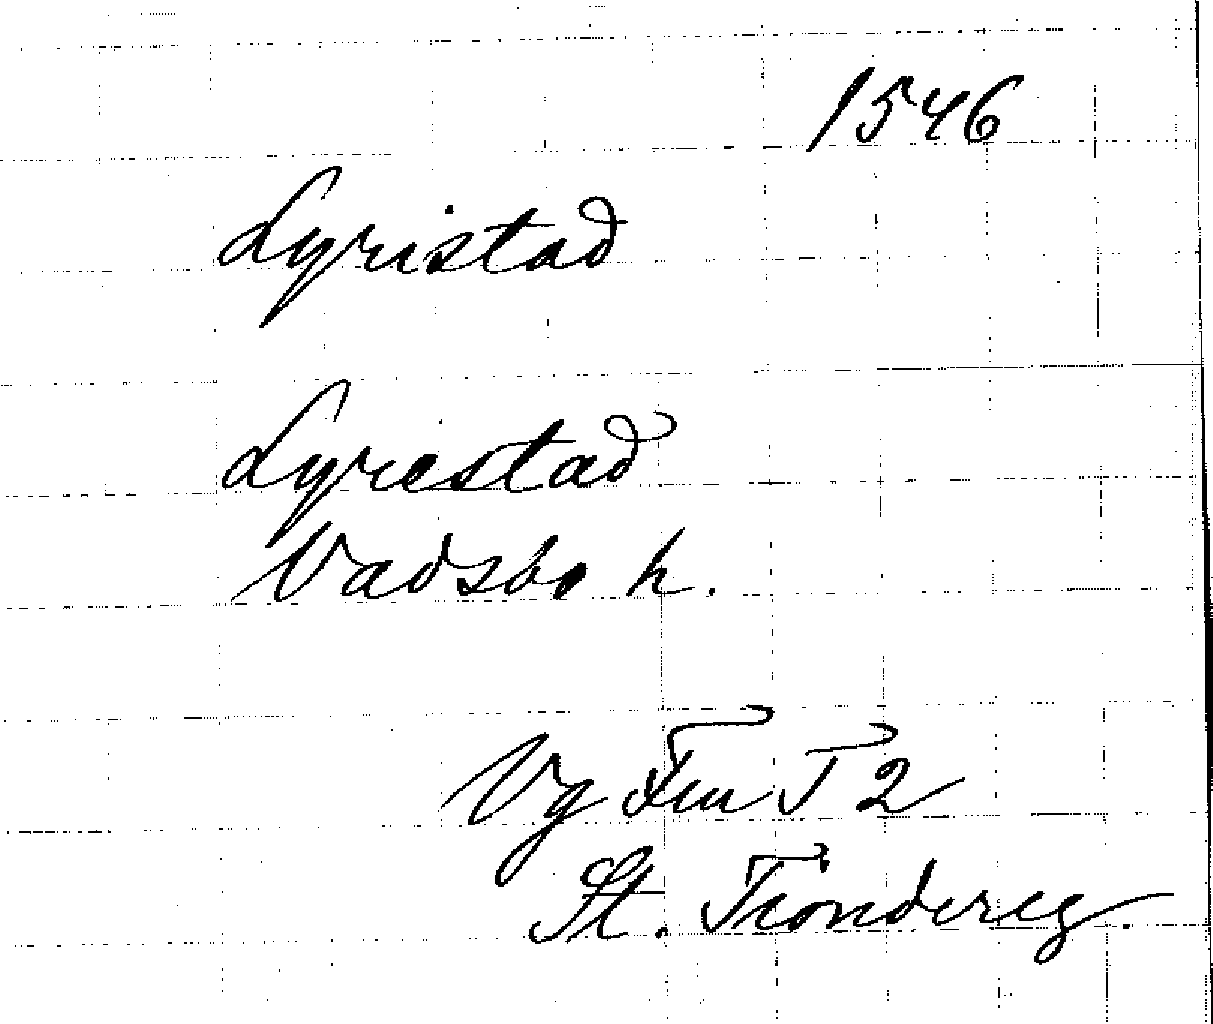 1546
Lyristad
Lyrestad
Vadsbo h.
Vg Fm T 2
St. Tiondereg.